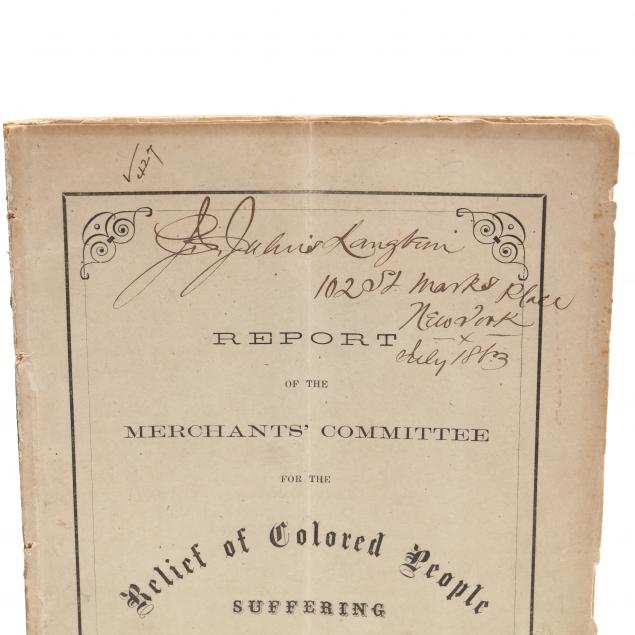 √427
J. Julius Langbein
102 St Marks Place
New York
x
July 1863
REPORT
OF THE
MERCHANTS' COMMITTEE
FOR THE
Relief of Colored People
SUFFERING